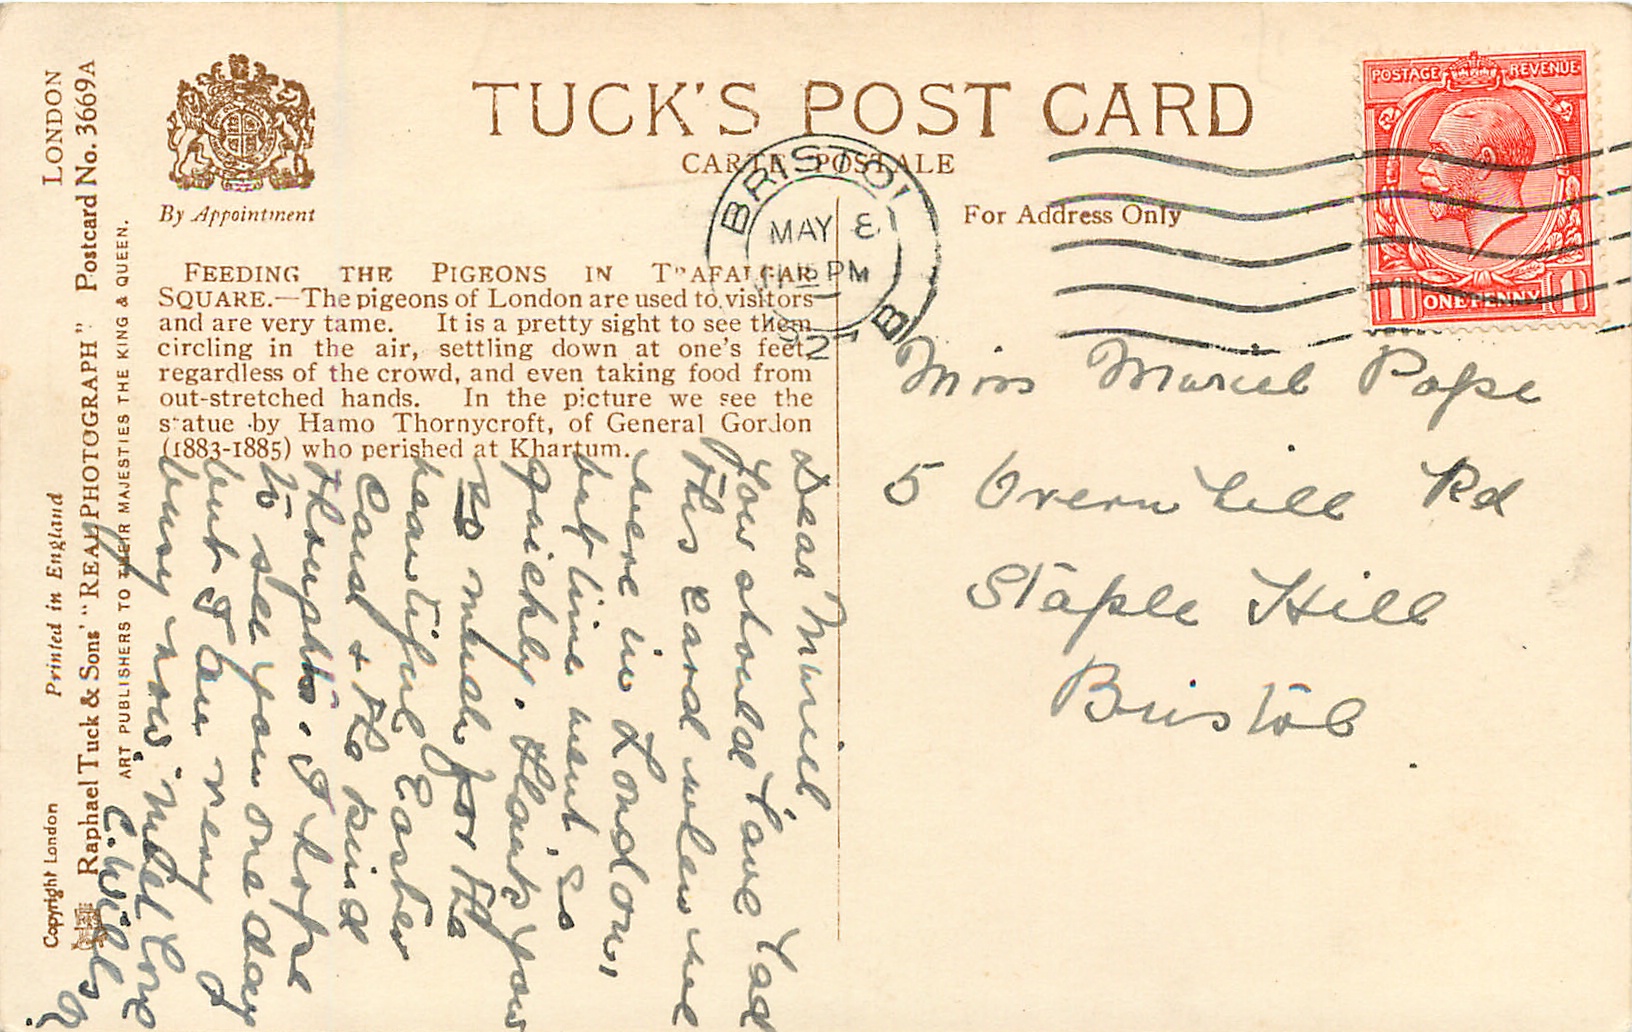 TUCK'S POST CARD
CARTE POSTALE
By Appointment
For Address Only
POSTAGE REVENUE
1 ONE PENNY 1
BRISTOL
MAY 8
15 PM
B
FEEDING THE PIGEONS IN TRAFALGAR
SQUARE.—The pigeons of London are used to visitors
and are very tame. It is a pretty sight to see them
circling in the air, settling down at one's feet,
regardless of the crowd, and even taking food from
out-stretched hands. In the picture we see the
statue by Hamo Thornycroft, of General Gordon
(1883-1885) who perished at Khartum.
LONDON
Postcard No. 3669A
Copyright London
Printed in England
Raphael Tuck & Sons' "REAL PHOTOGRAPH"
ART PUBLISHERS TO THEIR MAJESTIES THE KING & QUEEN.
Miss Muriel Pope
5 Overn hill Rd
Staple Hill
Bristol
Dear Muriel
You should have had
this card when we
were in London,
but time went so
quickly. Thank you
so much for the
beautiful Easter
Card & the kind
thoughts. I hope
to see you one day
but I am very
busy now. Much love
E. Wills